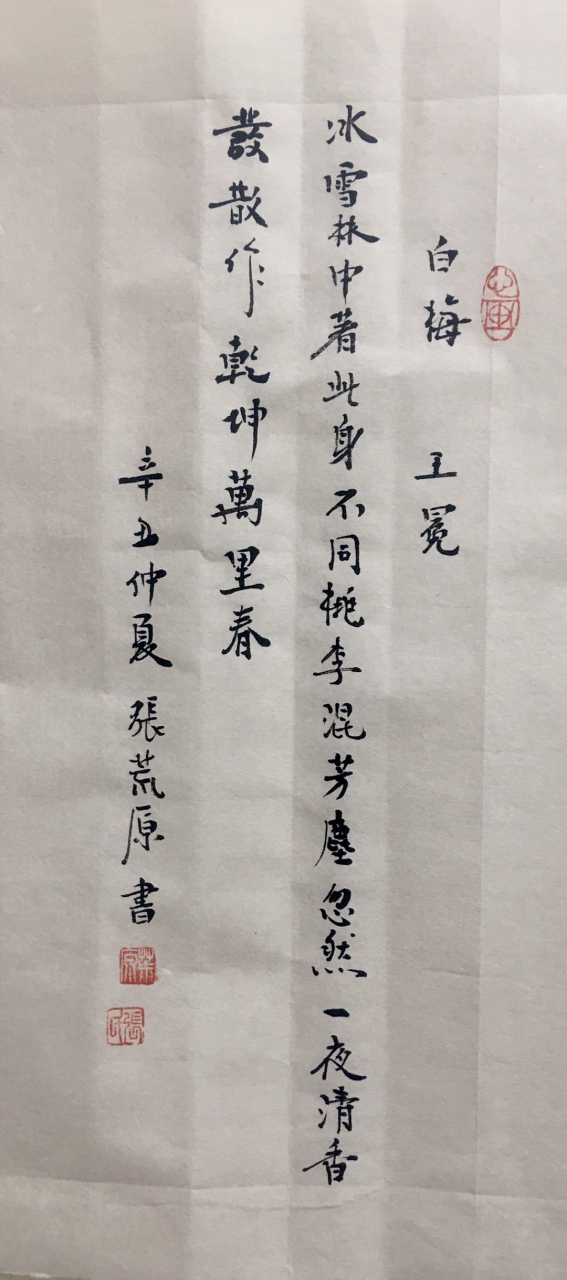 白梅 王冕
冰雪林中著此身不同桃李混芳塵忽然一夜清香
發散作乾坤萬里春
辛丑仲夏 張荒原書